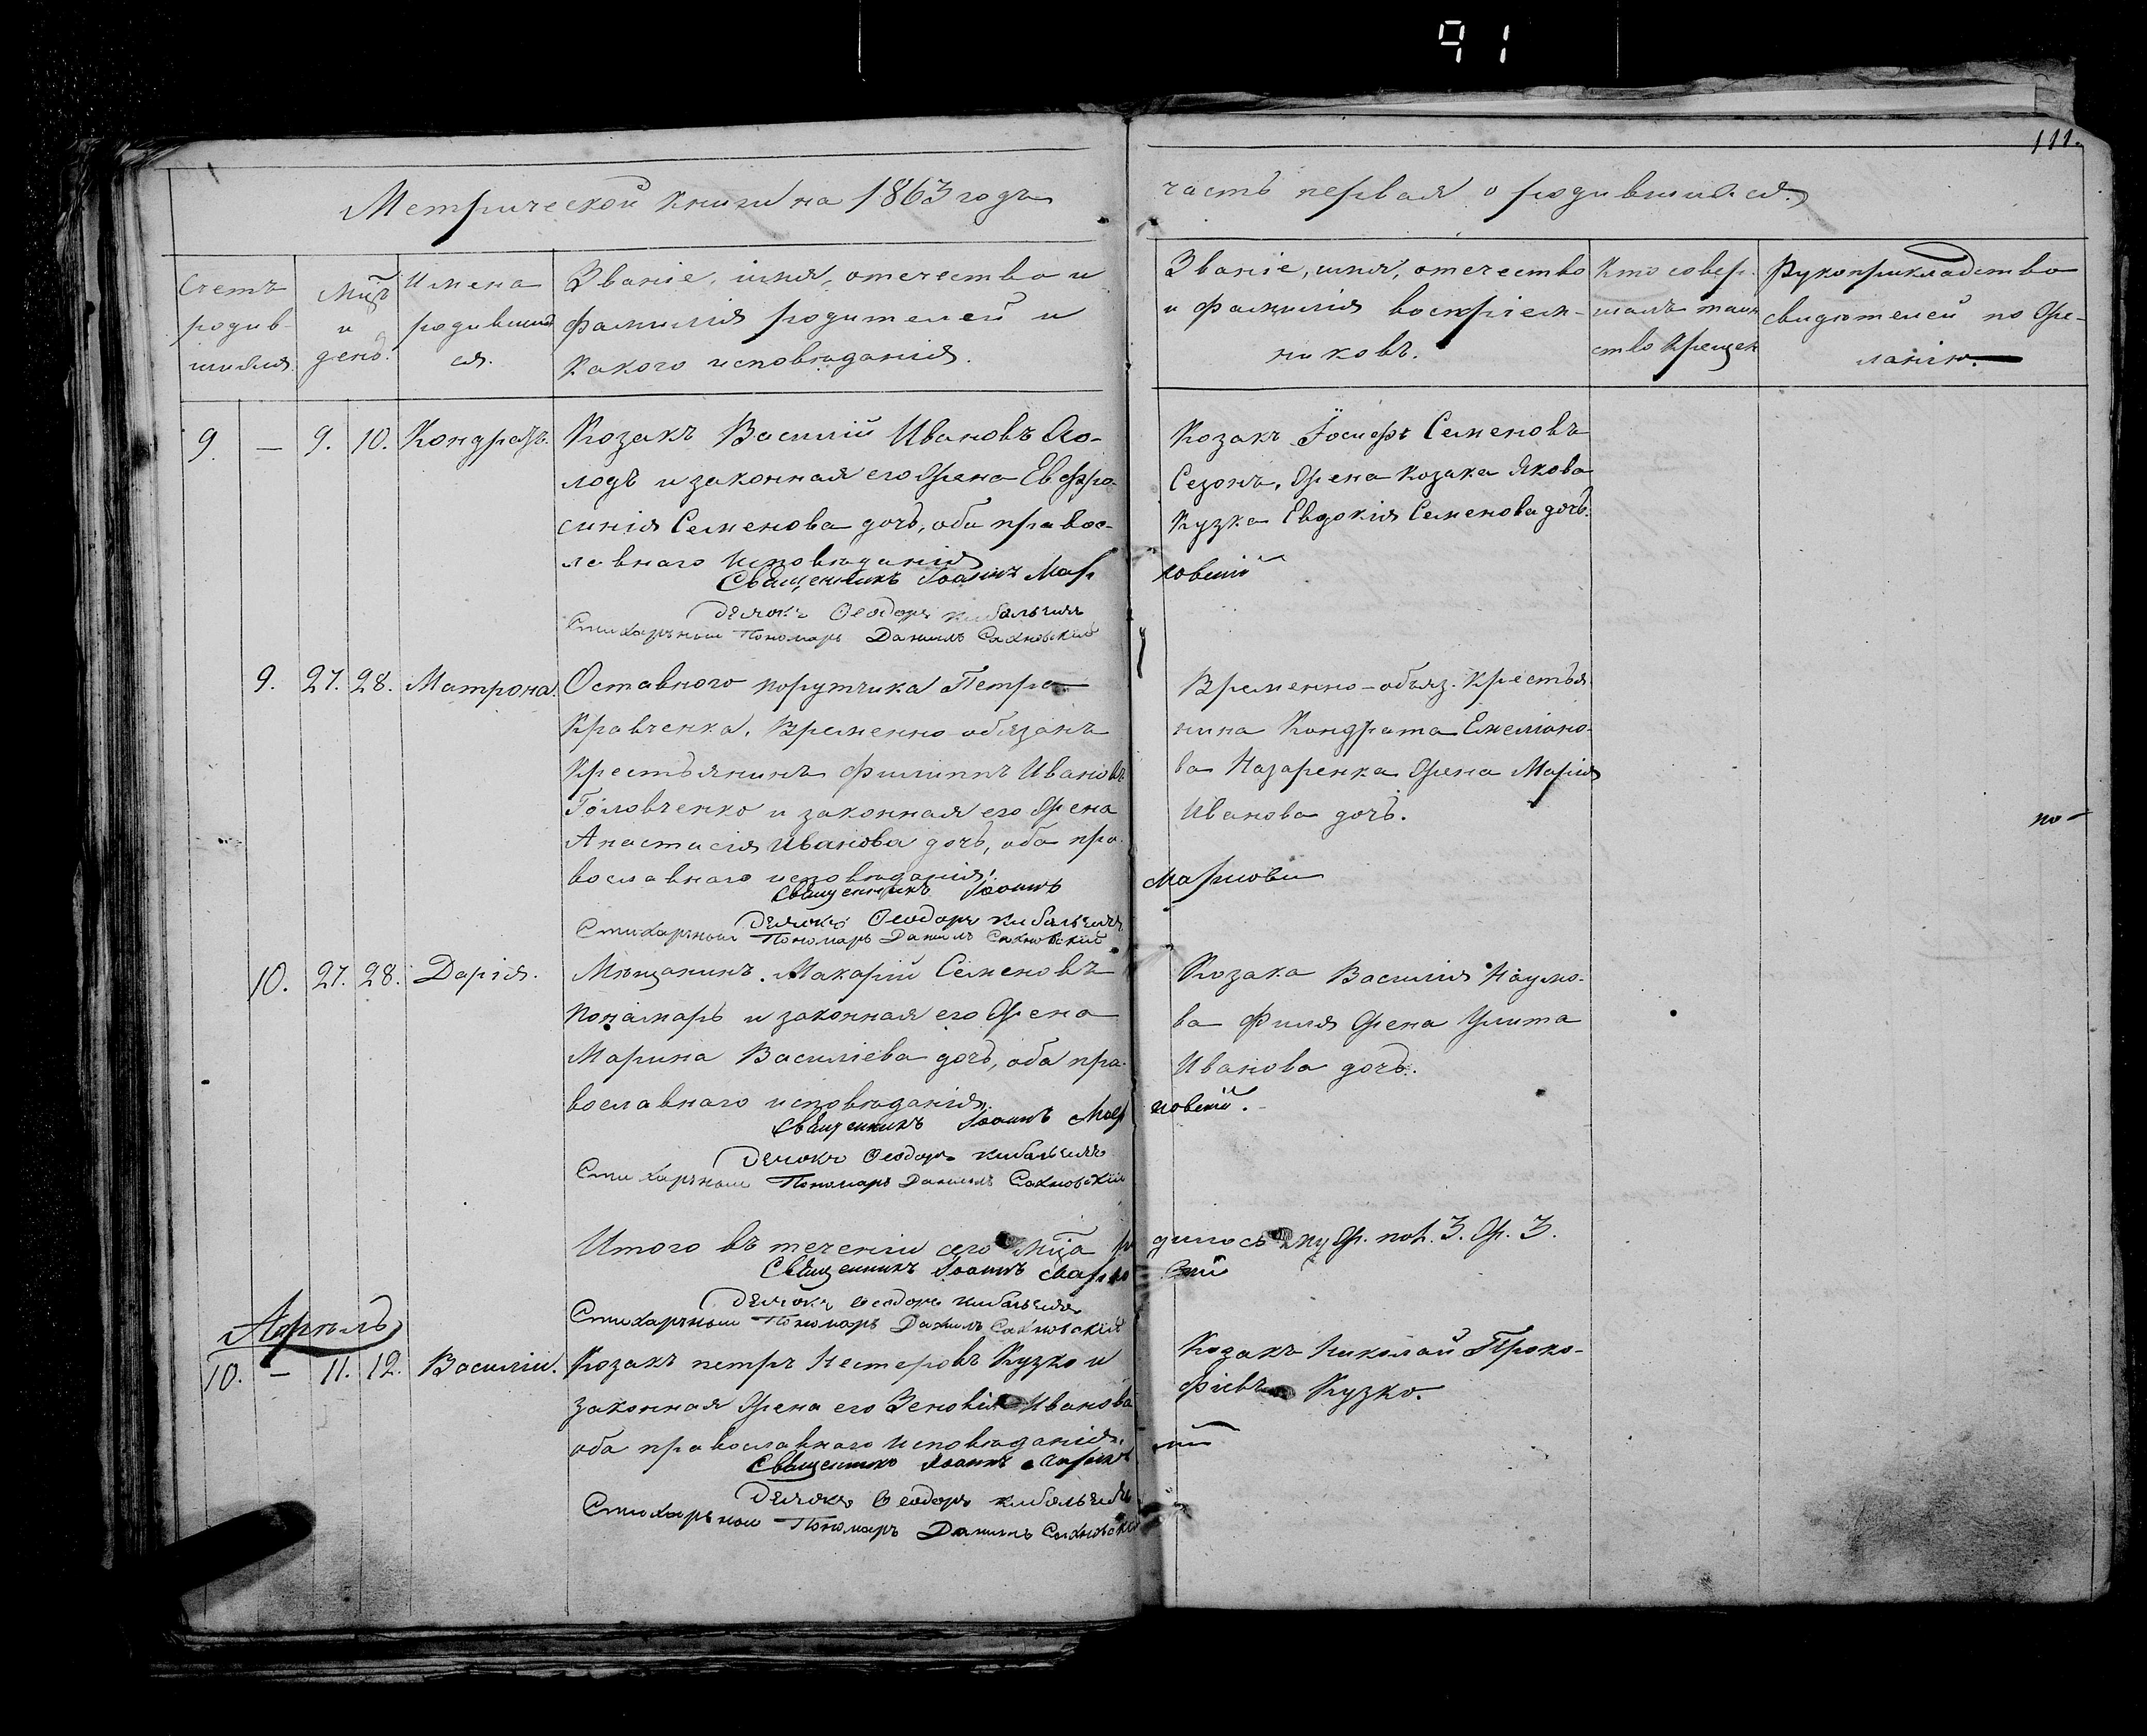 91
111.
Метрической книги на 1863 годъ
часть первая о родившихся.
Счетъ родив-шихся.
Мцъ и день.
Имена родившихся.
Званіе, имя, отечество и
фамилія родителей и
какого исповѣданія.
Званіе, имя, отечество
и фамилія воспріем-
никовъ.
Кто совер-
шалъ таин
ство крещен
Рукоприкладство
свидѣтелей по же-
ланію.
9. — 9. 10. Кондратъ.
Козакъ Василій Ивановъ
и законная его жена Евфро-
синія Семенова дочь, оба правос-
лавнаго исповѣданія
Священникъ Іоаннъ Мар
Дьячокъ Ѳеодоръ Кибальчичъ
Стихарный Пономарь Даніилъ Сахновскій
Козакъ Іосифъ Семеновъ
Сезонъ, жена козака Якова
Кузка Евдокія Семенова дочь.
ковскій
9. 27. 28. Матрона.
Оставного порутчика Петра
Кравченка, временно-обязанъ
крестьянинъ Филиппъ Ивановъ
Головченко и законная его жена
Анастасія Иванова дочь, оба пра-
вославнаго исповѣданія.
Священникъ Іоаннъ
Дьячокъ Ѳеодоръ Кибальчичъ
Стихарный Пономарь Даніилъ Сахновскій
Временно-обяз. крестья
нина Кондрата Емеліано-
ва Назаренка жена Марія
Иванова дочь.
по-
10. 27. 28. Дарія.
Мѣщанинъ Макарій Семеновъ
Понамарь и законная его жена
Марина Василіева дочь, оба пра-
вославнаго исповѣданія.
Священникъ Іоаннъ Мар
Дьячокъ Ѳеодоръ Кибальчичъ
Стихарный Пономарь Даніилъ Сахновскій
Козака Василія Наумо-
ва Филя жена Улита
Иванова дочь.
ковскій.
Итого въ теченіи сего мца ро
дилось муж. пол. 3. ж. 3.
Священникъ Іоаннъ Марко
Дьячокъ Ѳеодоръ Кибальчичъ
Стихарный Пономарь Даніилъ Сахновскій
Апрѣль
10. — 11. 12. Василій.
Козакъ Петръ Нестеровъ Кузко и
законная жена его Зеновія Иванова
оба православнаго исповѣданія.
Священникъ Іоаннъ
Дьячокъ Ѳеодоръ Кибальчичъ
Стихарный Пономарь Даніилъ Сахновскій
Козакъ Николай Проко-
фіевъ Кузко.